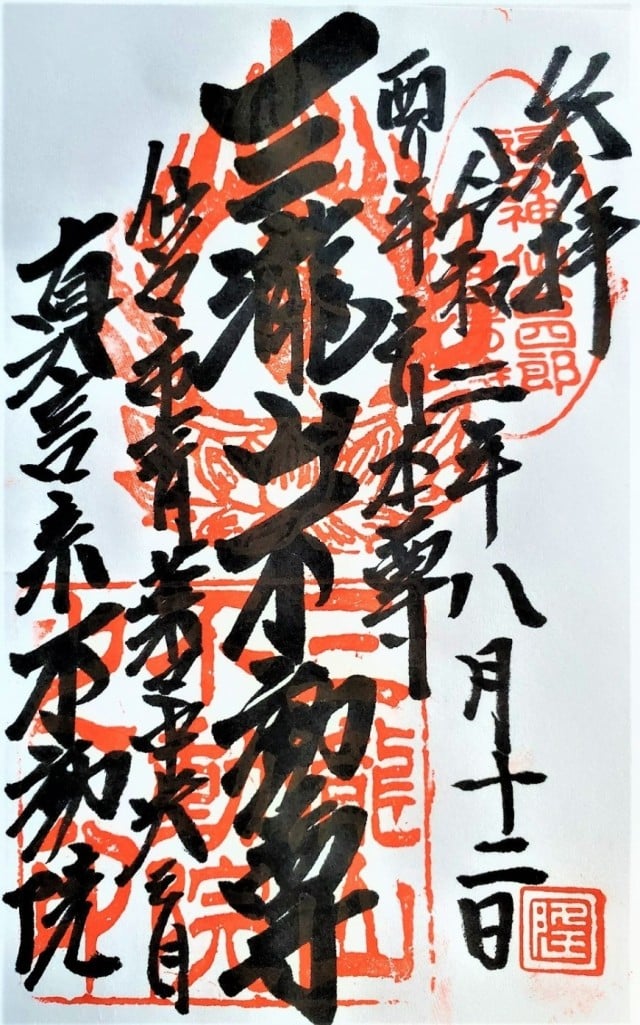 参拝
令和二年八月十二日
酉り年守り本尊
三瀧山不動尊
仙台市青葉中央
真言宗不動院
福の神 仙台四郎
三瀧山
不動院
隆